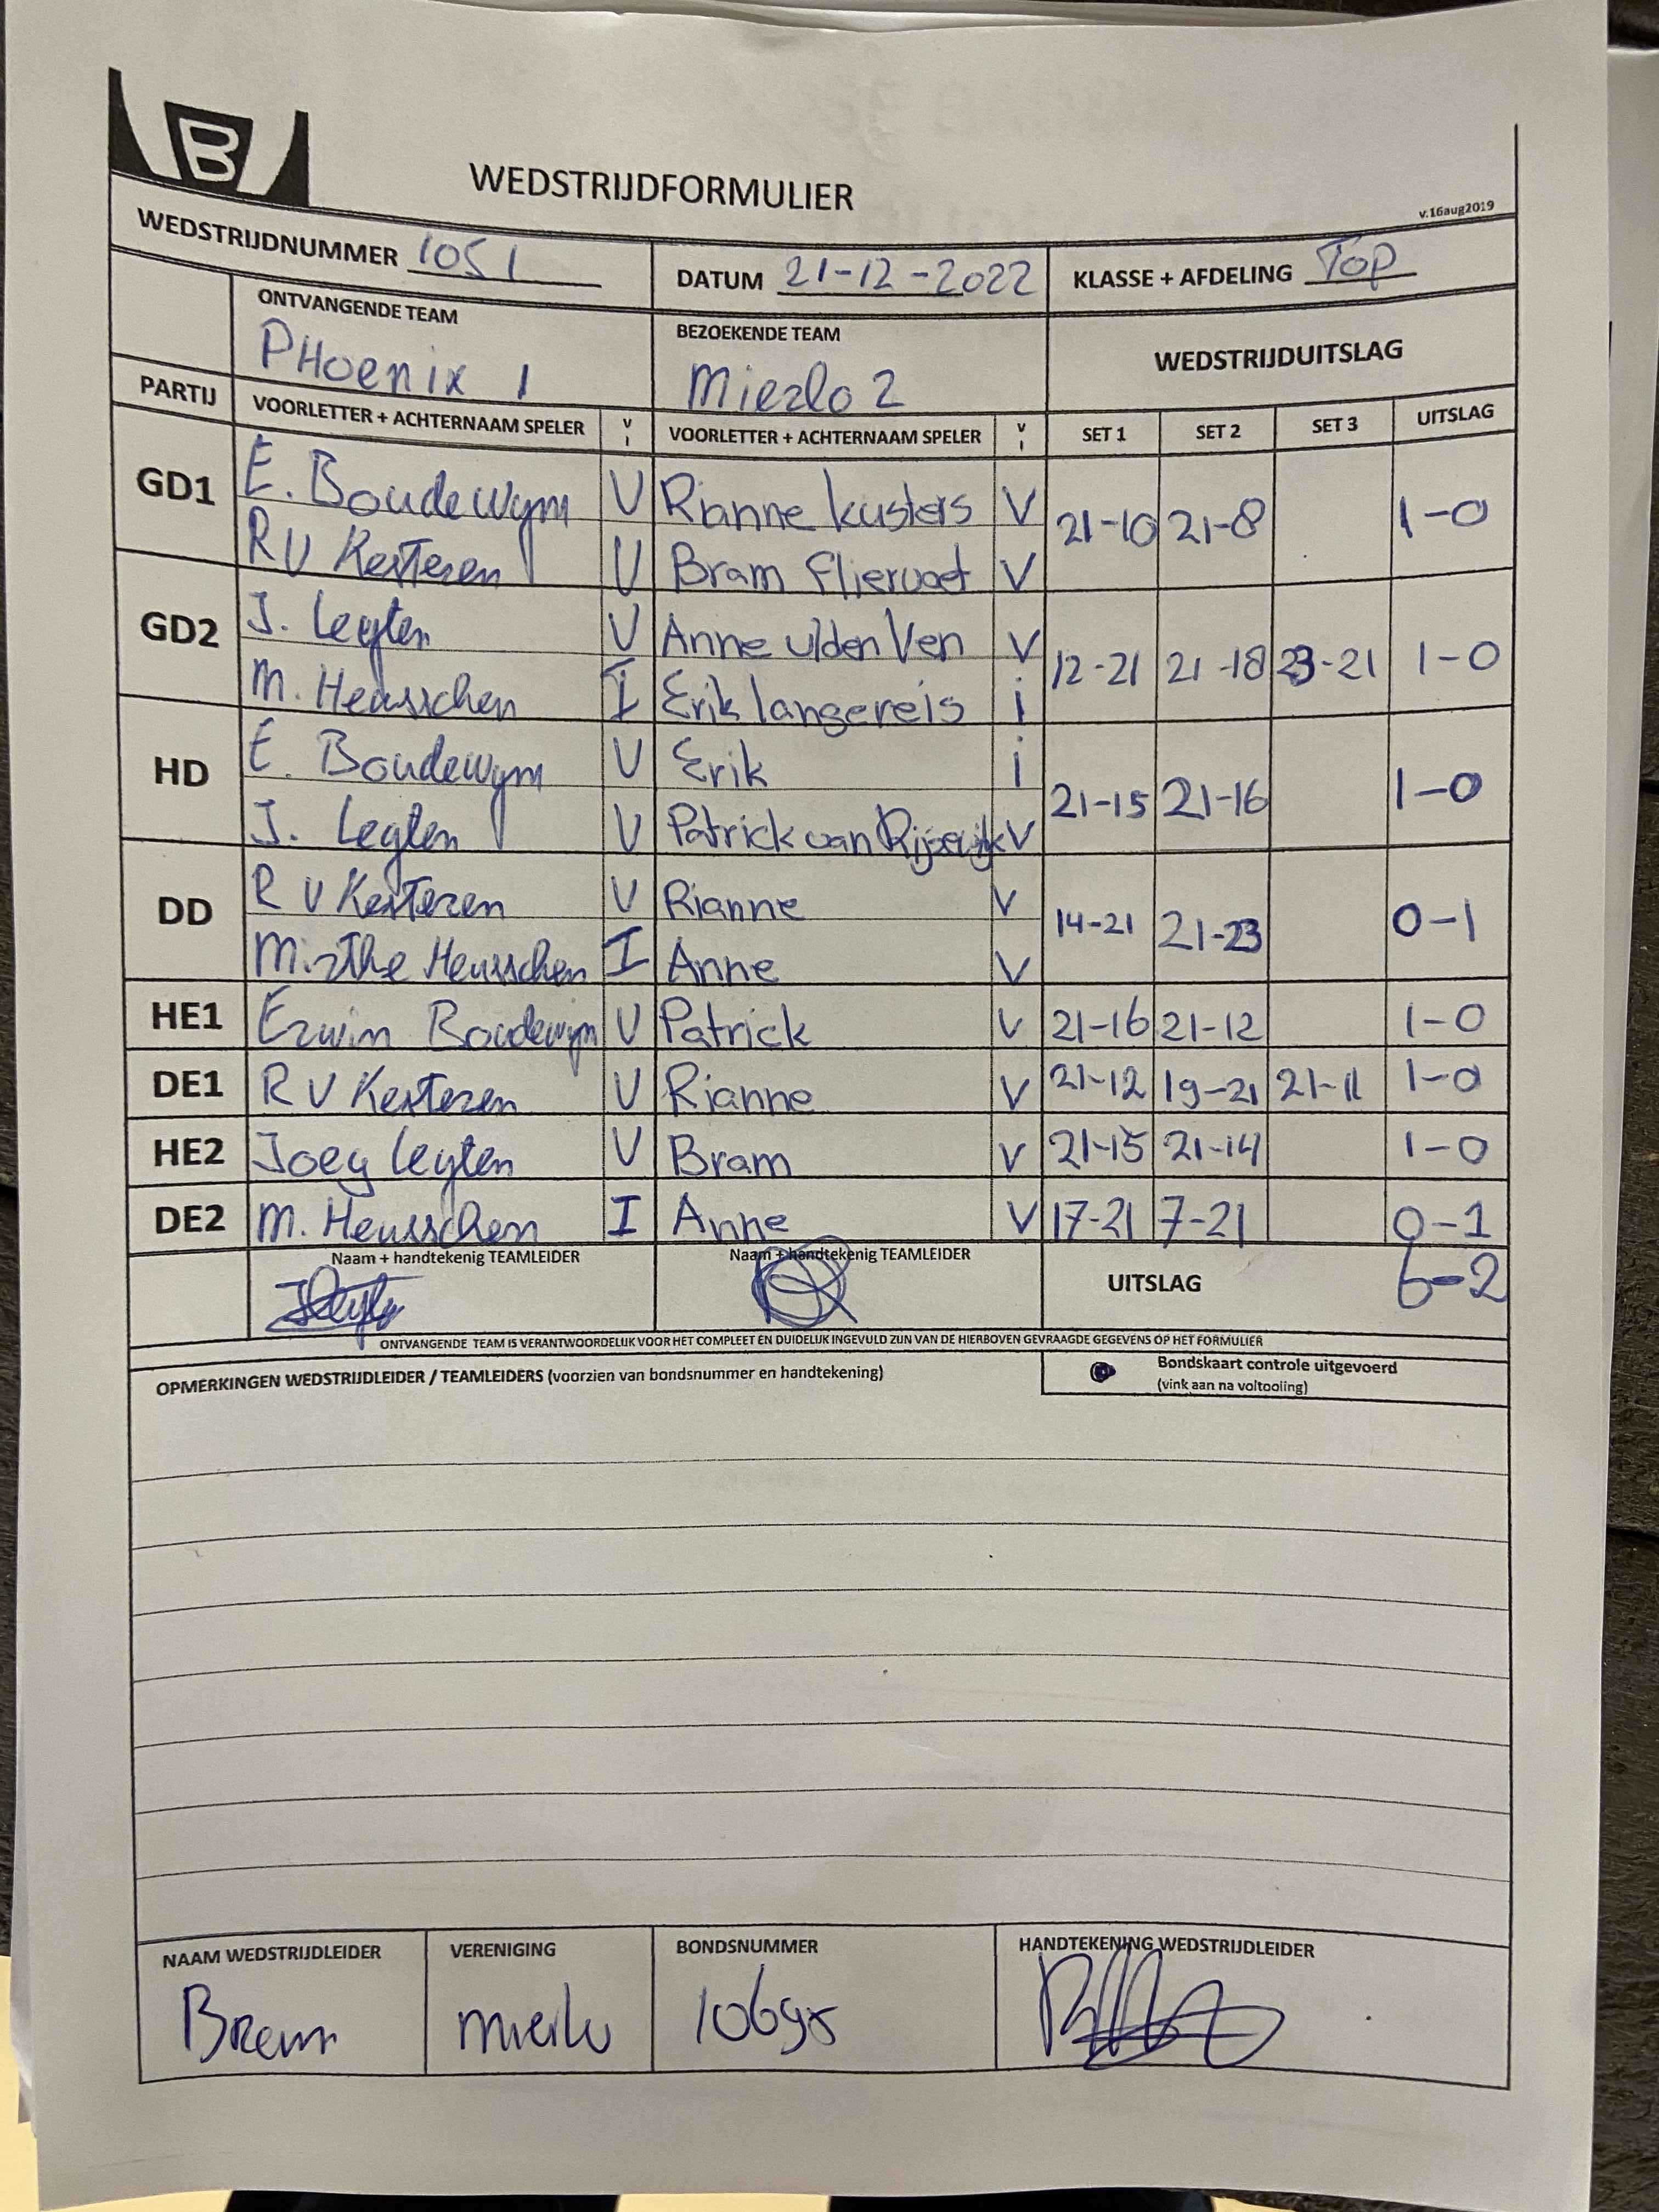 B
WEDSTRIJDFORMULIER
v.16aug2019
WEDSTRIJDNUMMER 1051 DATUM 21-12-2022 KLASSE + AFDELING TOP
ONTVANGENDE TEAM BEZOEKENDE TEAM WEDSTRIJDUITSLAG
PHoenix 1 Mierlo 2
PARTIJ VOORLETTER + ACHTERNAAM SPELER V I VOORLETTER + ACHTERNAAM SPELER V I SET 1 SET 2 SET 3 UITSLAG
GD1 E. Boudewijn V Rianne kusters V 21-10 21-8 1-0
R V Kesteren V Bram Fliervoet V
GD2 J. Leyten V Anne v/den Ven V 12-21 21-18 23-21 1-0
M. Heusschen I Erik langereis i
HD E. Boudewijn V Erik i 21-15 21-16 1-0
J. Leyten V Patrick van Rijswijk V
DD R V Kesteren V Rianne V 14-21 21-23 0-1
Mirthe Heusschen I Anne V
HE1 Erwin Boudewijn V Patrick V 21-16 21-12 1-0
DE1 R V Kesteren V Rianne V 21-12 19-21 21-11 1-0
HE2 Joey Leyten V Bram V 21-15 21-14 1-0
DE2 M. Heusschen I Anne V 17-21 7-21 0-1
Naam + handtekenig TEAMLEIDER Naam + handtekenig TEAMLEIDER UITSLAG 6-2
ONTVANGENDE TEAM IS VERANTWOORDELIJK VOOR HET COMPLEET EN DUIDELIJK INGEVULD ZIJN VAN DE HIERBOVEN GEVRAAGDE GEGEVENS OP HET FORMULIER
OPMERKINGEN WEDSTRIJDLEIDER / TEAMLEIDERS (voorzien van bondsnummer en handtekening) Bondskaart controle uitgevoerd
(vink aan na voltooiing)
NAAM WEDSTRIJDLEIDER VERENIGING BONDSNUMMER HANDTEKENING WEDSTRIJDLEIDER
Bram mierlo